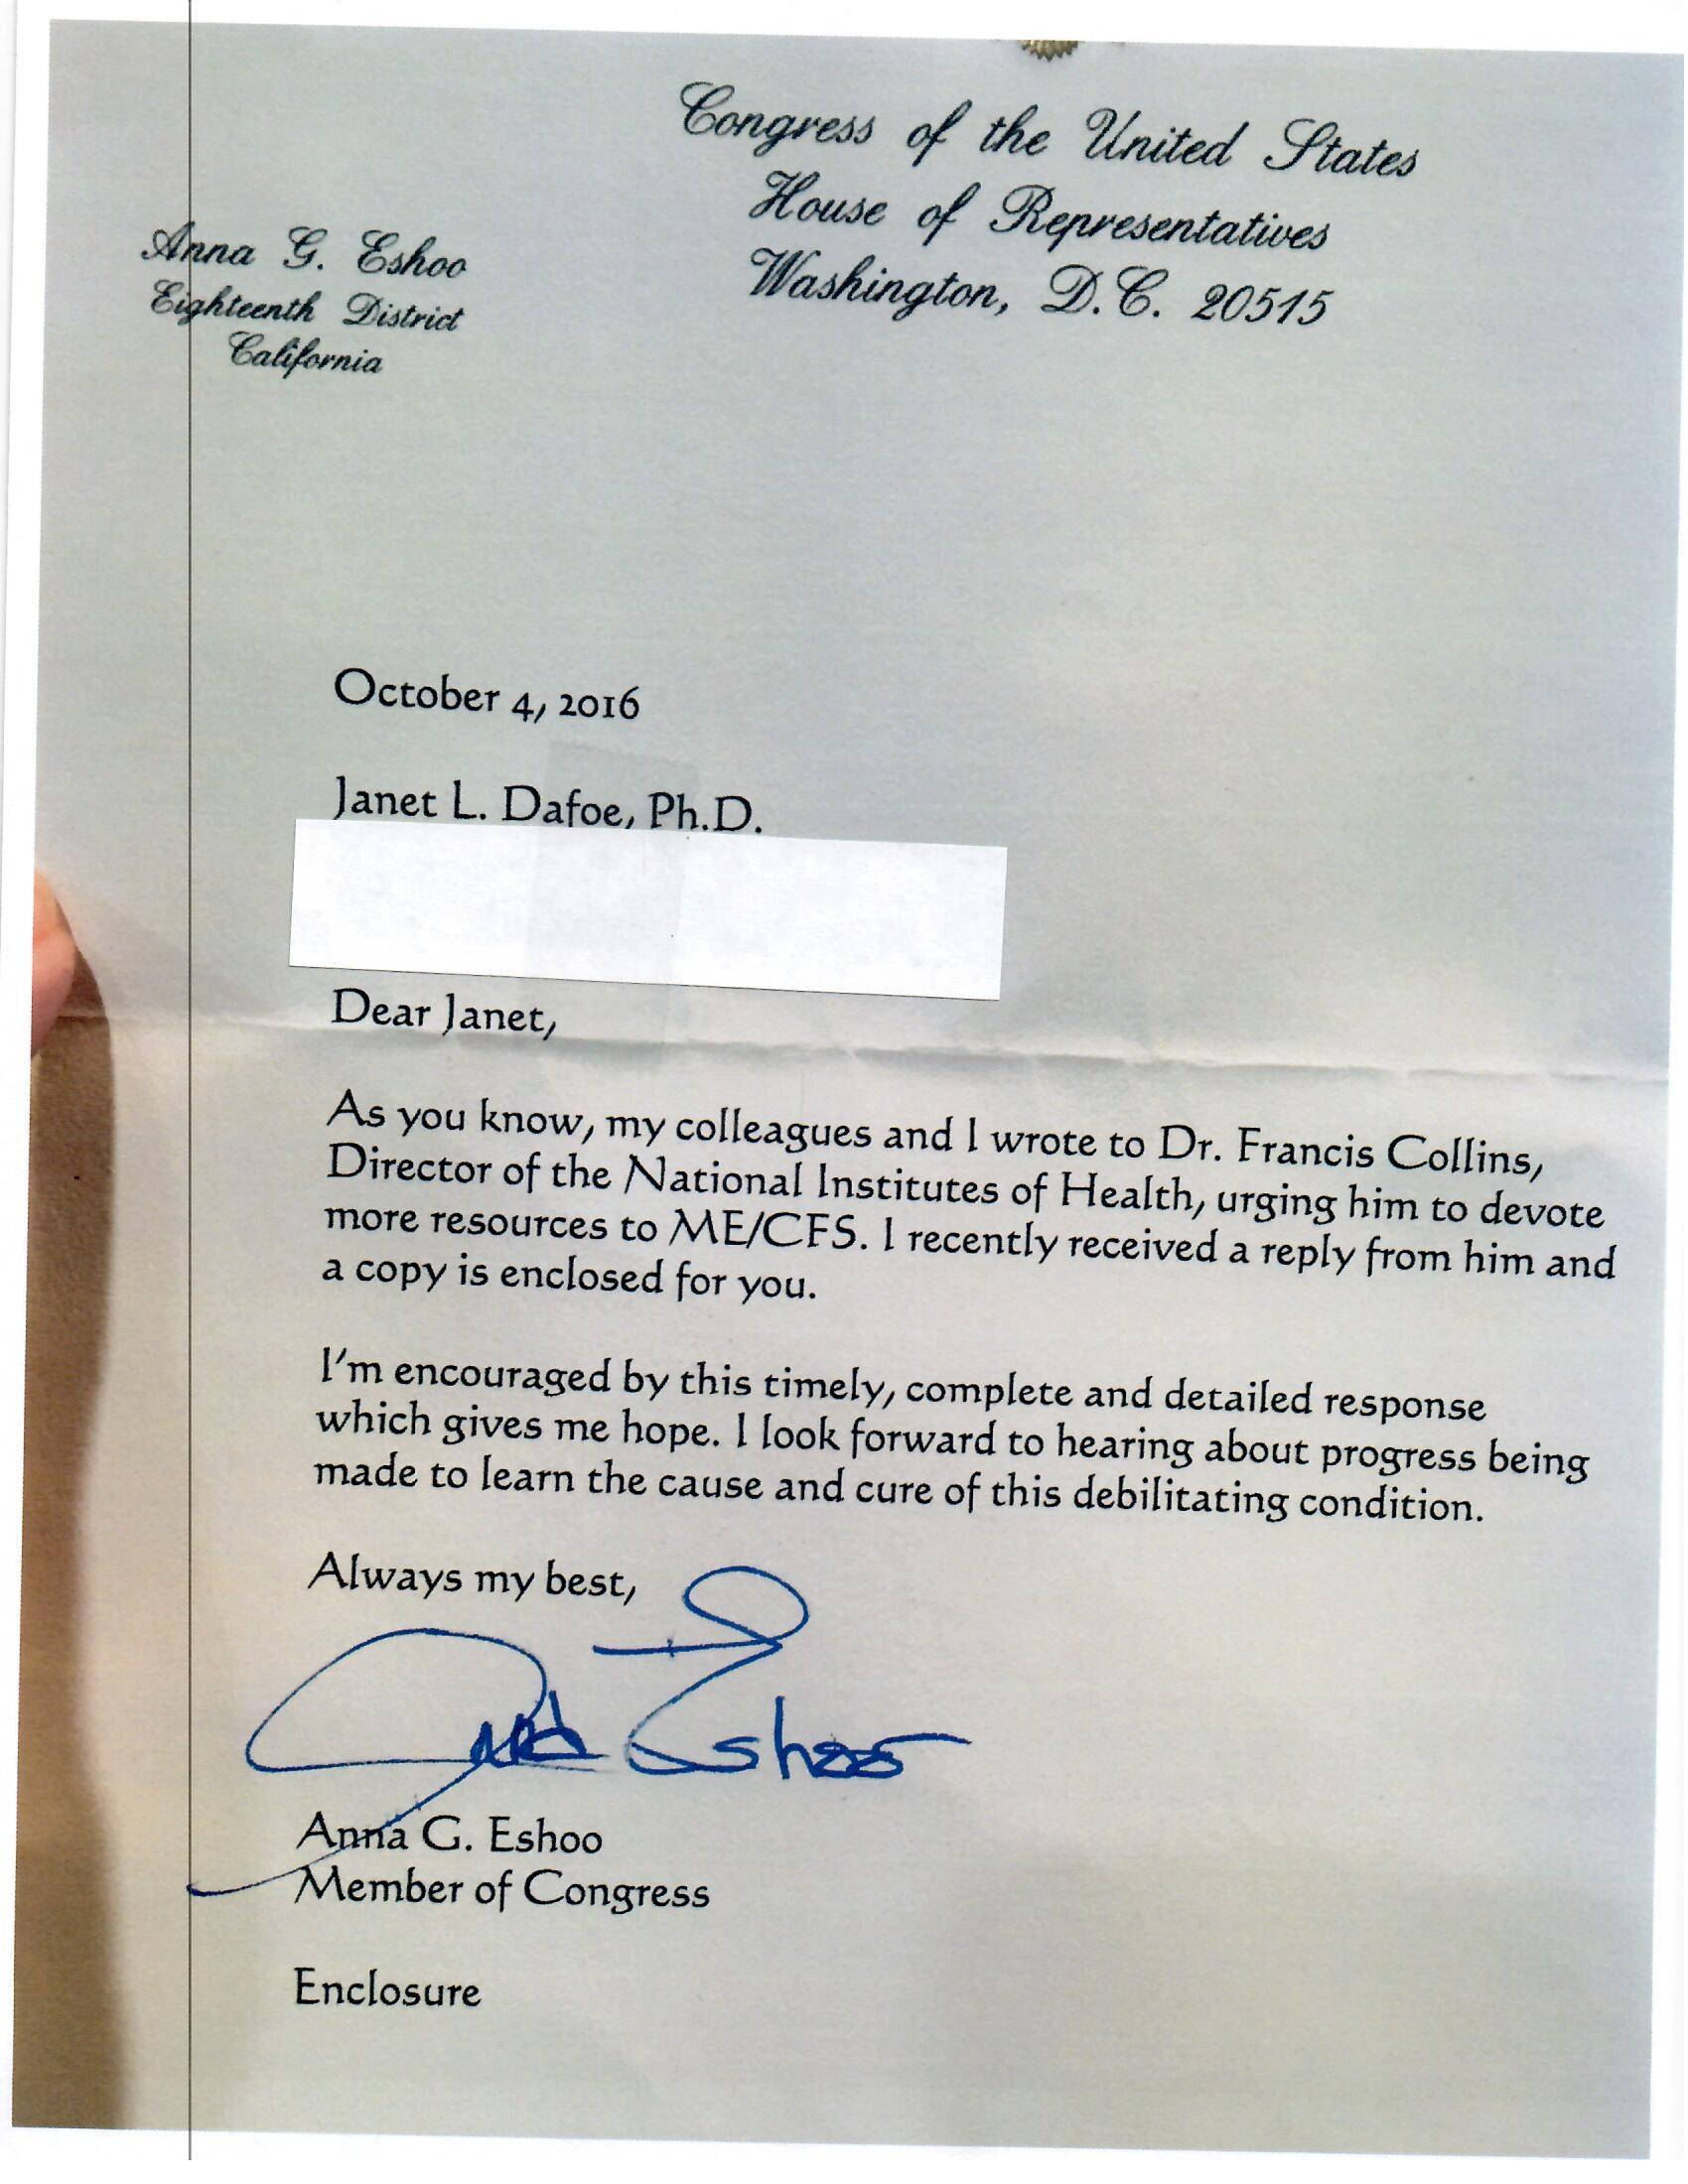 Congress of the United States
House of Representatives
Washington, D.C. 20515
Anna G. Eshoo
Eighteenth District
California
October 4, 2016
Janet L. Dafoe, Ph.D.
Dear Janet,
As you know, my colleagues and I wrote to Dr. Francis Collins,
Director of the National Institutes of Health, urging him to devote
more resources to ME/CFS. I recently received a reply from him and
a copy is enclosed for you.
I'm encouraged by this timely, complete and detailed response
which gives me hope. I look forward to hearing about progress being
made to learn the cause and cure of this debilitating condition.
Always my best,
Anna Eshoo
Anna G. Eshoo
Member of Congress
Enclosure